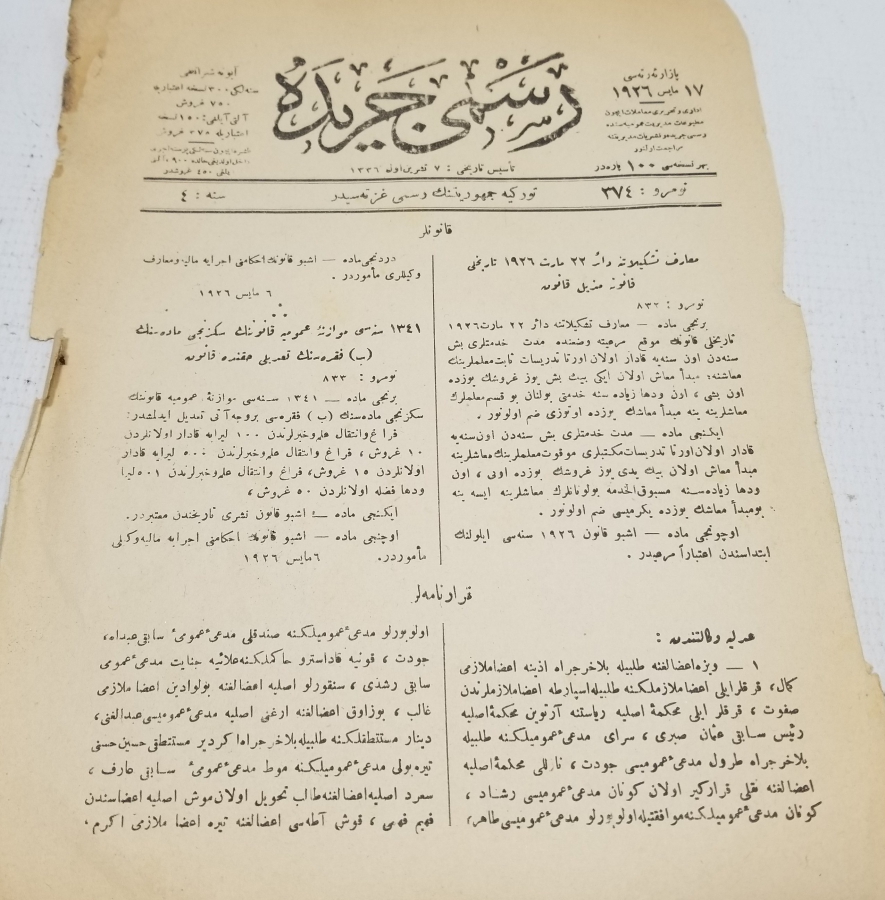 رسمى جريده
بازارئرتەسى
١٧ مايس ١٩٢٦
اداری و تحریری معاملات ایچون
مراجعت اولنور
بهر نسخه‌سی ١٠٠ پاره‌در
آبونه شرائطی
سنه‌لكی ٣٠٠ نسخه اعتباریله
٧٥٠ غروش
آلتی آیلغی: ١٥٠ نسخه
اعتباریله ٣٧٥ غروش
تأسیس تاریخی : ٧ تشرین اول ١٣٣٦
نومرو : ٣٧٤
توركیه جمهوریتنك رسمی غزته‌سیدر
سنه : ٤
قانونلر
معارف تشكیلاتنه دائر ٢٢ مارت ١٩٢٦ تاریخلی
قانونه مذیل قانون
نومرو : ٨٣٢
برنجی ماده — معارف تشكیلاتنه دائر ٢٢ مارت ١٩٢٦
تاریخلی قانونك موقع مرعیته وضعنده مدت خدمتلری بش
سنه‌دن اون سنه‌یه قادار اولان اورتا تدریسات ثابت معلملرینك
معاشنه؛ مبدأ معاش اولان ایكی بیك بش یوز غروشك یوزده
اون بشی ، اون ودها زیاده سنه خدمتی بولنان بو قسم معلملرك
معاشلرینه ینه مبدأ معاشك یوزده اوتوزی ضم اولونور .
ایكنجی ماده — مدت خدمتلری بش سنه‌دن اون سنه‌یه
قادار اولان اورتا تدریسات مكتبلری موقوت معلملرینك معاشلرینه
مبدأ معاش اولان بیك یدی یوز غروشك یوزده اونی ، اون
ودها زیاده سنه مسبوق الخدمه بولونانلرك معاشلرینه ایسه ینه
بو مبدأ معاشك یوزده یكرمیسی ضم اولونور .
اوچونجی ماده — اشبو قانون ١٩٢٦ سنه‌سی ایلولنك
ابتداسندن اعتباراً مرعیدر .
دردنجی ماده — اشبو قانونك احكامنی اجرایه مالیه ومعارف
وكیللری مأموردر .
٦ مایس ١٩٢٦
١٣٤١ سنه‌سی موازنهٔ عمومیه قانوننك سكزنجی ماده‌سنك
(ب) فقره‌سنك تعدیلی حقنده قانون
نومرو : ٨٣٣
برنجی ماده — ١٣٤١ سنه‌سی موازنهٔ عمومیه قانوننك
سكزنجی ماده‌سنك (ب) فقره‌سی بروجه آتی تعدیل ایدلمشدر:
فراغ وانتقال علم وخبرلرندن ١٠٠ لیرایه قادار اولانلردن
١٠ غروش ، فراغ وانتقال علم وخبرلرندن ٥٠٠ لیرایه قادار
اولانلردن ١٥ غروش، فراغ وانتقال علم وخبرلرندن ٥٠١ لیرا
ودها فضله اولانلردن ٥٠ غروش ،
ایكنجی ماده — اشبو قانون نشری تاریخندن معتبردر.
اوچنجی ماده — اشبو قانونك احكامنی اجرایه مالیه وكیلی
مأموردر. ٦ مایس ١٩٢٦
قرارنامه‌لر
عدلیه وكالتندن :
١ — ویزه اعضالغنه طلبیله بلا خرجراه ادینه اعضا ملازمی
كمال، قرقلر ایلی اعضا ملازملكنه طلبیله اسپارطه اعضا ملازملرندن
صفوت ، قرقلر ایلی محكمهٔ اصلیه ریاستنه آرتوین محكمهٔ اصلیه
رئیس سابقی عثمان صبری ، سرای مدعیٔ عمومیلكنه طلبیله
بلا خرجراه طرول مدعیٔ عمومیسی جودت ، نازللی محكمهٔ اصلیه
اعضالغنه نقلی قرارگیر اولان كونان مدعیٔ عمومیسی رشاد ،
كونان مدعیٔ عمومیلكنه موافقتیله اولوبورلو مدعیٔ عمومیسی طاهر،
اولوبورلو مدعیٔ عمومیلكنه صندقلی مدعیٔ عمومیٔ سابقی عبداه،
جودت ، قونیه قاداسترو حاكملكنه علائیه جنایت مدعیٔ عمومی
سابقی رشدی ، سنقورلو اصلیه اعضالغنه بولوادین اعضا ملازمی
غالب ، بوزاوق اعضالغنه ارغنی اصلیه مدعیٔ عمومیسی عبدالغنی،
دینار مستنطقلكنه طلبیله بلا خرجراه اكردیر مستنطقی حسین حسنی
تیره‌بولی مدعیٔ عمومیلكنه موط مدعیٔ عمومیٔ سابقی عارف ،
سعرد اصلیه اعضالغنه طالب تحویل اولان موش اصلیه اعضاسندن
فهیم فهمی ، قوش آطه‌سی اعضالغنه تیره اعضا ملازمی اكرم.